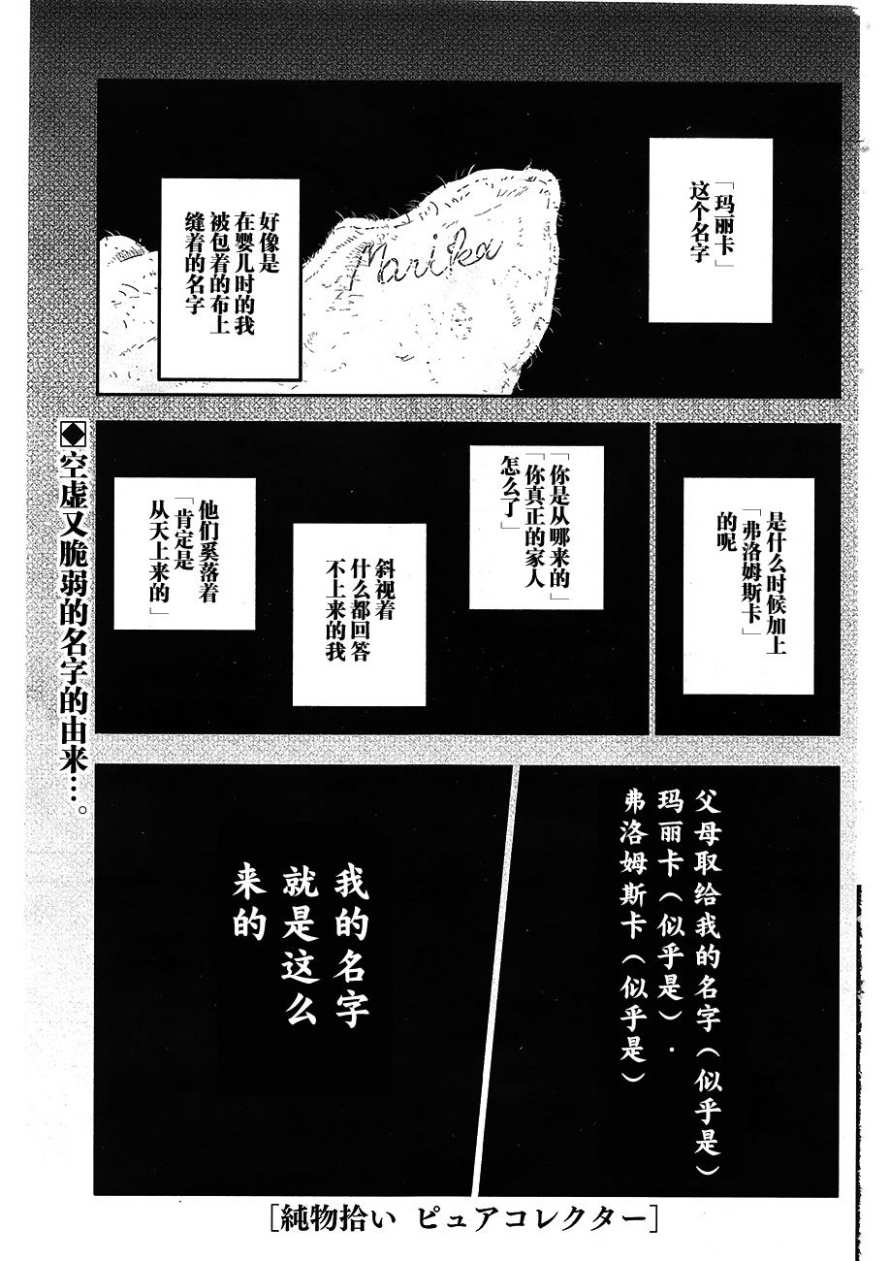 「玛丽卡」
这个名字
Marika
好像是
在婴儿时的我
被包着的布上
缝着的名字
是什么时候加上
「弗洛姆斯卡」
的呢
「你是从哪来的」
「你真正的家人
怎么了」
斜视着
什么都回答
不上来的我
他们奚落着
「肯定是
从天上来的」
父母取给我的名字（似乎是）
玛丽卡（似乎是）·
弗洛姆斯卡（似乎是）
我的名字
就是这么
来的
◆空虚又脆弱的名字的由来…。
［純物拾い ピュアコレクター］